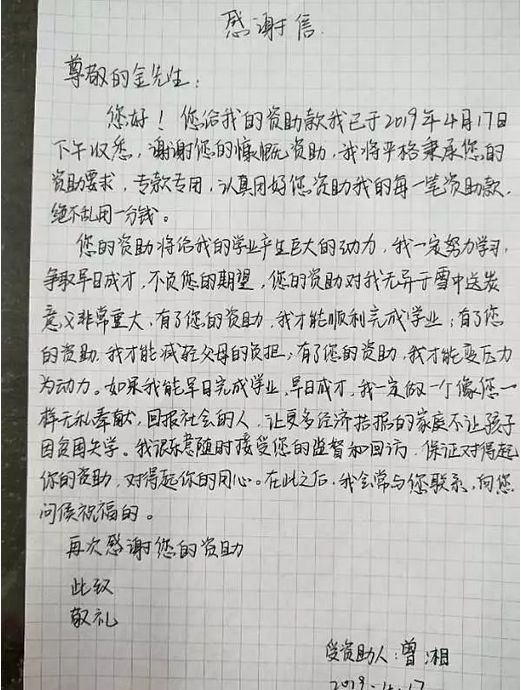 感谢信
尊敬的金先生：
您好！您给我的资助款我已于2019年4月17日
下午收悉，谢谢您的慷慨资助，我将严格秉承您的
资助要求，专款专用，认真用好您资助我的每一笔资助款，
绝不乱用一分钱。
您的资助将给我的学业产生巨大的动力，我一定努力学习，
争取早日成才，不负您的期望，您的资助对我无异于雪中送炭
意义非常重大，有了您的资助，我才能顺利完成学业；有了您
的资助，我才能减轻父母的负担；有了您的资助，我才能变压力
为动力。如果我能早日完成学业，早日成才，我一定做一个像您一
样无私奉献，回报社会的人，让更多经济拮据的家庭不让孩子
因贫困失学。我很乐意随时接受您的监督和回访，保证对得起
你的资助，对得起你的用心。在此之后，我会常与您联系，向您
问候祝福的。
再次感谢您的资助
此致
敬礼
受资助人：曾湘
2019.4.17